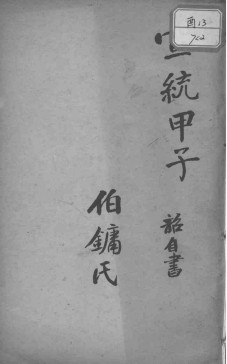 酉13
7C2
宣統甲子
韶自書
伯鏞氏